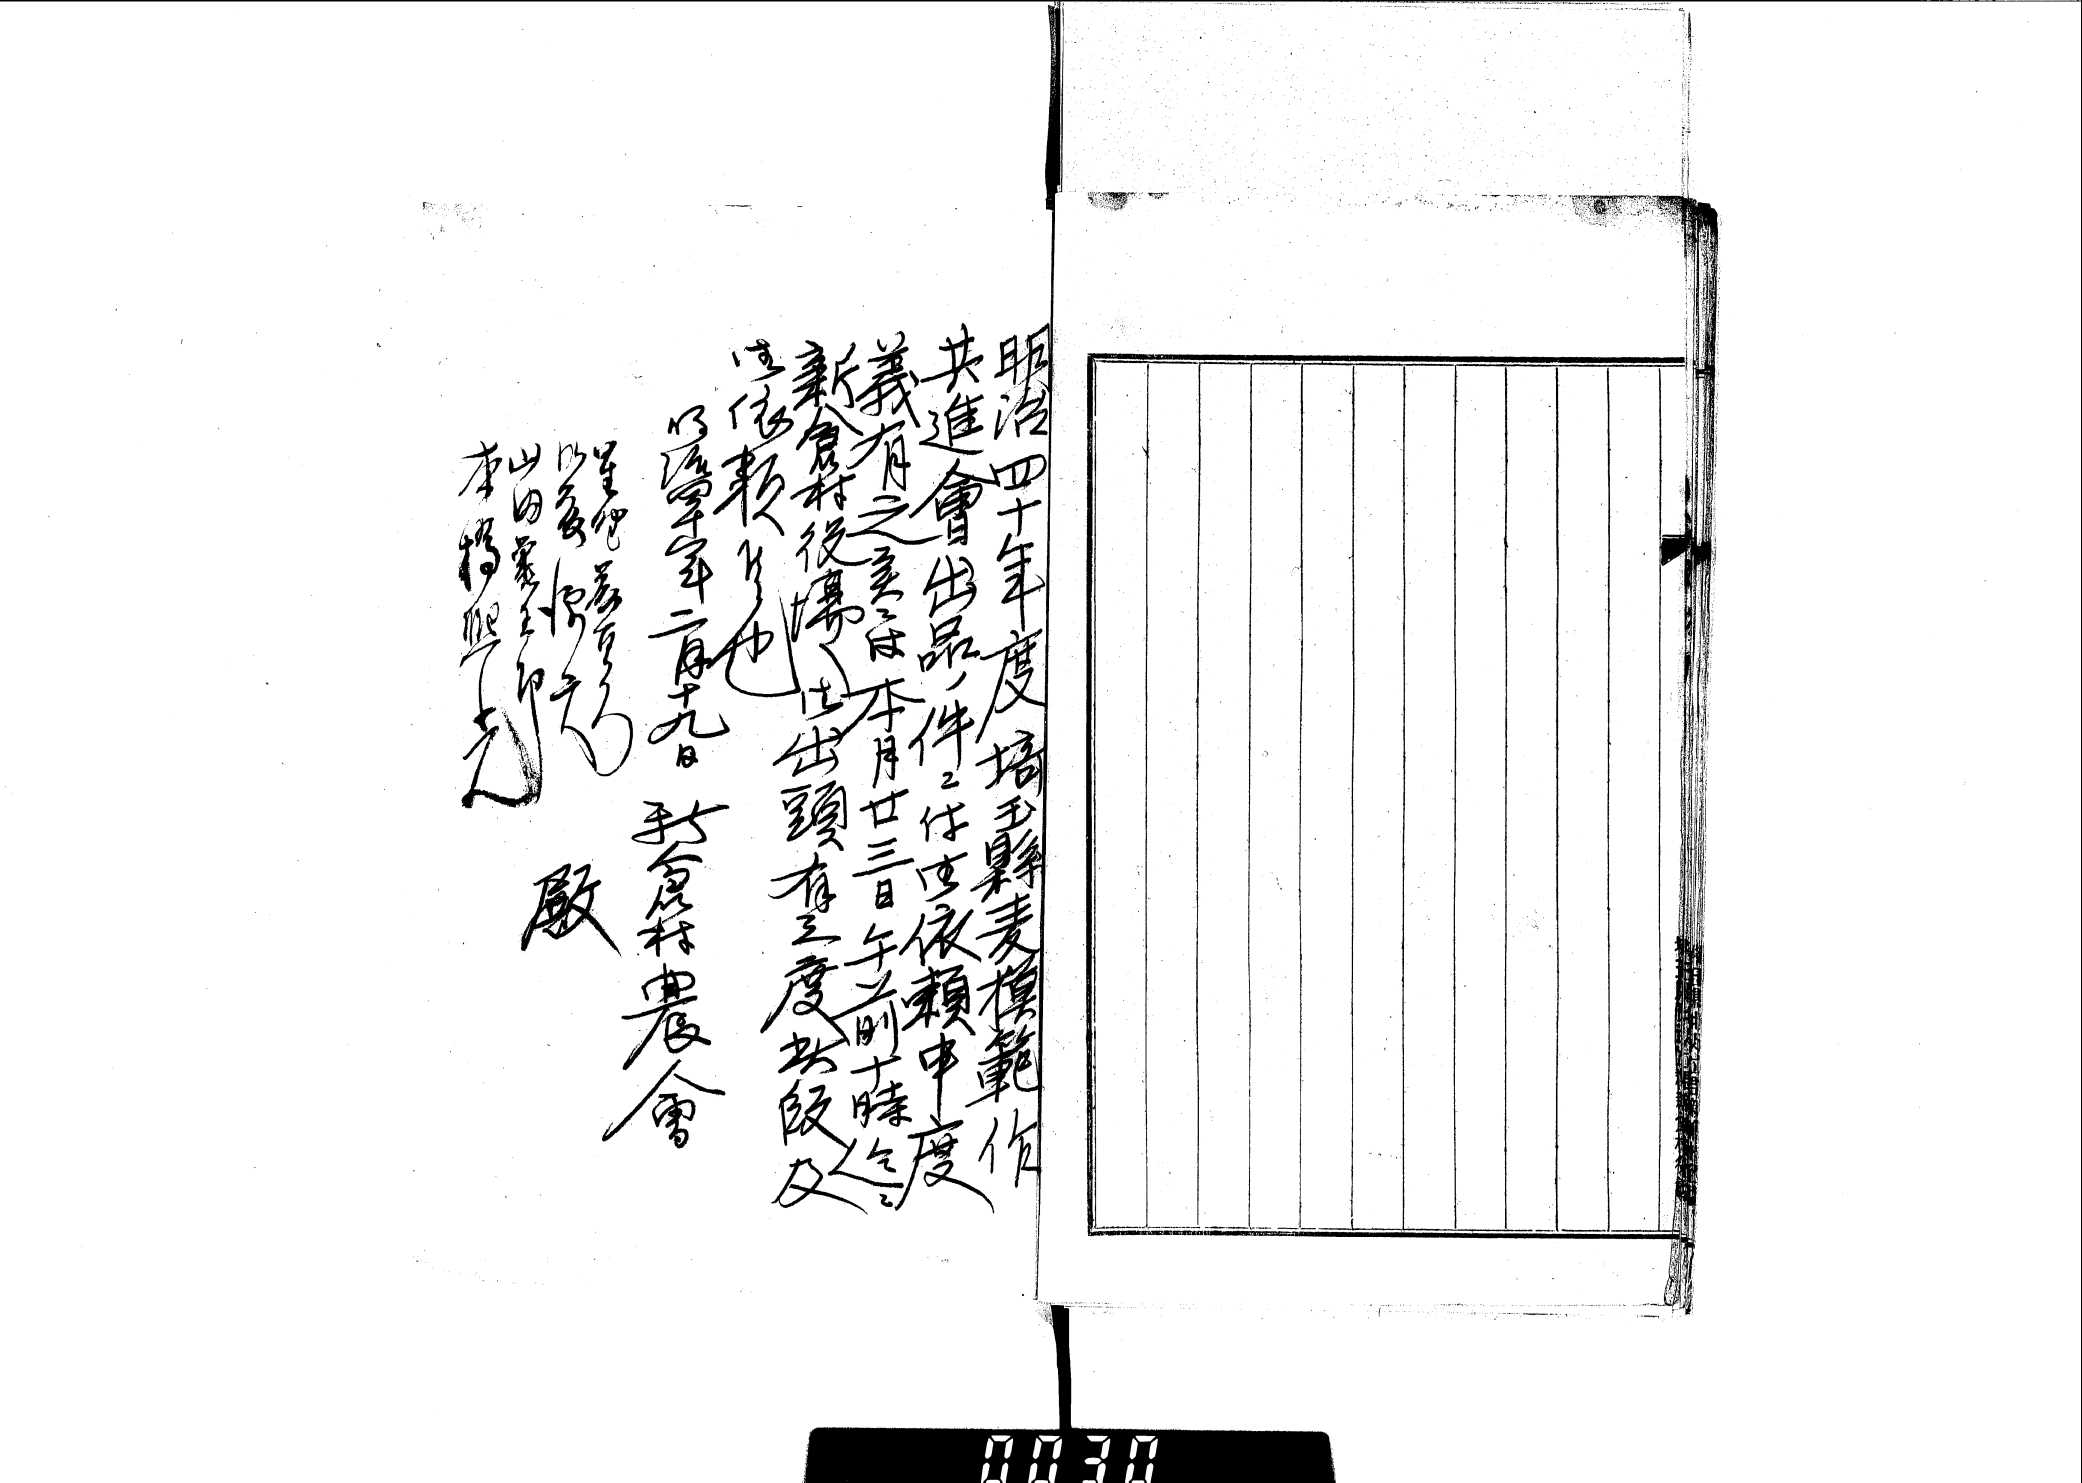 明治四十年度埼玉縣麦模範作
共進會出品ノ件ニ付御依頼申度
義有之候ニ付本月廿三日午前十時迄ニ
新倉村役場ヘ御出頭有之度此段及
御依頼候也
明治四十年二月十九日
新倉村農会
山田
本橋熙光
殿
0030